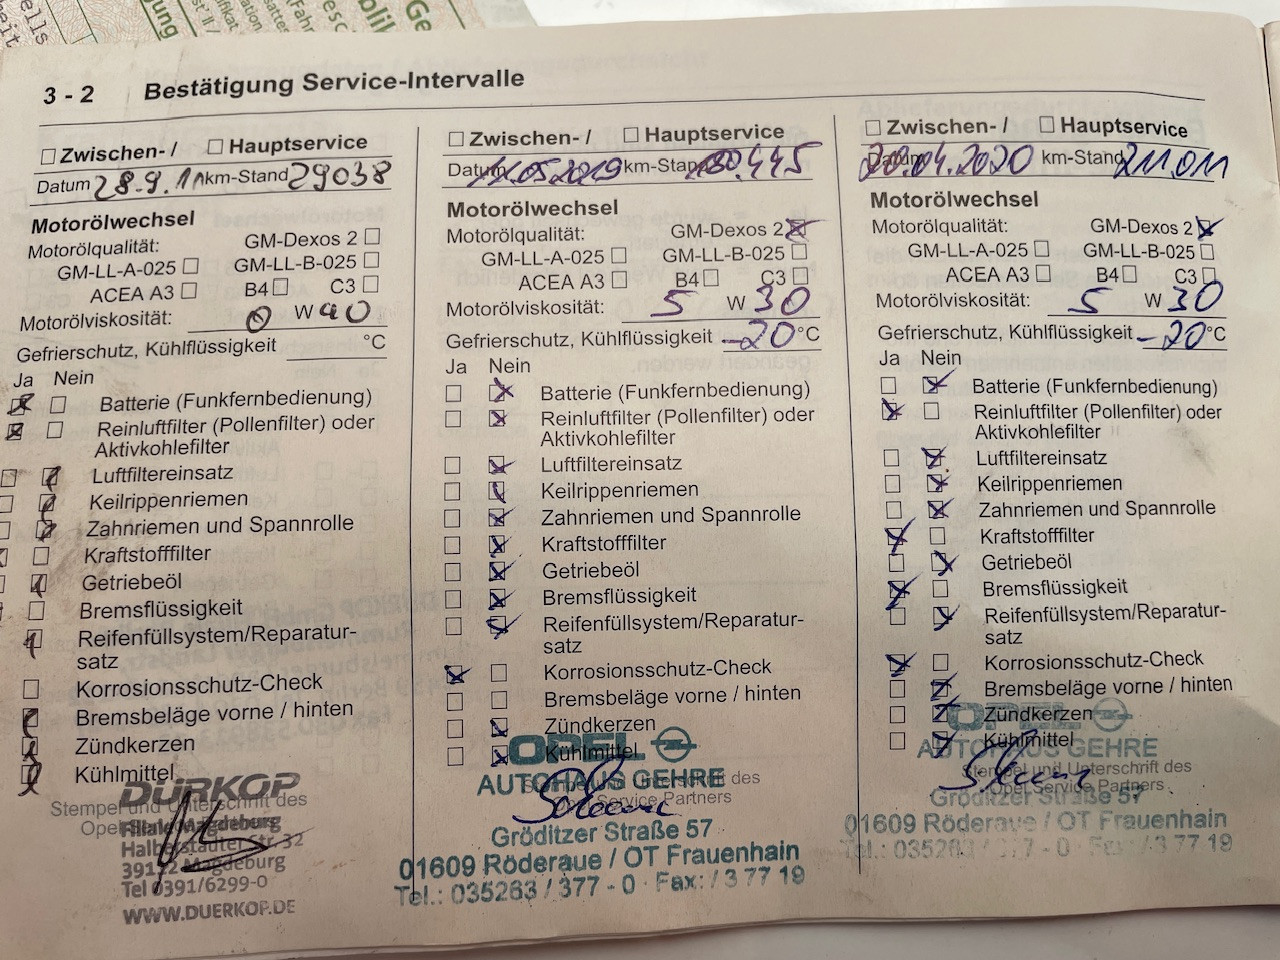 3 - 2 Bestätigung Service-Intervalle
Zwischen- / Hauptservice
Datum 28.9.11 km-Stand 29038
Motorölwechsel
Motorölqualität: GM-Dexos 2
GM-LL-A-025 GM-LL-B-025
ACEA A3 B4 C3
Motorölviskosität: 0 W 40
Gefrierschutz, Kühlflüssigkeit °C
Ja Nein
Batterie (Funkfernbedienung)
Reinluftfilter (Pollenfilter) oder
Aktivkohlefilter
Luftfiltereinsatz
Keilrippenriemen
Zahnriemen und Spannrolle
Kraftstofffilter
Getriebeöl
Bremsflüssigkeit
Reifenfüllsystem/Reparatur-
satz
Korrosionsschutz-Check
Bremsbeläge vorne / hinten
Zündkerzen
Kühlmittel
DÜRKOP
Stempel und Unterschrift des
Filiale Magdeburg
Halberstädter Str. 32
39122 Magdeburg
Tel 0391/6299-0
WWW.DUERKOP.DE
Zwischen- / Hauptservice
Datum 11.05.2019 km-Stand 180.445
Motorölwechsel
Motorölqualität: GM-Dexos 2
GM-LL-A-025 GM-LL-B-025
ACEA A3 B4 C3
Motorölviskosität: 5 W 30
Gefrierschutz, Kühlflüssigkeit -20 °C
Ja Nein
Batterie (Funkfernbedienung)
Reinluftfilter (Pollenfilter) oder
Aktivkohlefilter
Luftfiltereinsatz
Keilrippenriemen
Zahnriemen und Spannrolle
Kraftstofffilter
Getriebeöl
Bremsflüssigkeit
Reifenfüllsystem/Reparatur-
satz
Korrosionsschutz-Check
Bremsbeläge vorne / hinten
Zündkerzen
Kühlmittel
OPEL
AUTOHAUS GEHRE
Stempel und Unterschrift des
Opel Service Partners
Gröditzer Straße 57
01609 Röderaue / OT Frauenhain
Tel.: 035263 / 377 - 0 · Fax: / 3 77 19
Zwischen- / Hauptservice
Datum 20.04.2020 km-Stand 211.011
Motorölwechsel
Motorölqualität: GM-Dexos 2
GM-LL-A-025 GM-LL-B-025
ACEA A3 B4 C3
Motorölviskosität: 5 W 30
Gefrierschutz, Kühlflüssigkeit -20 °C
Ja Nein
Batterie (Funkfernbedienung)
Reinluftfilter (Pollenfilter) oder
Aktivkohlefilter
Luftfiltereinsatz
Keilrippenriemen
Zahnriemen und Spannrolle
Kraftstofffilter
Getriebeöl
Bremsflüssigkeit
Reifenfüllsystem/Reparatur-
satz
Korrosionsschutz-Check
Bremsbeläge vorne / hinten
Zündkerzen
Kühlmittel
OPEL
AUTOHAUS GEHRE
Stempel und Unterschrift des
Opel Service Partners
Gröditzer Straße 57
01609 Röderaue / OT Frauenhain